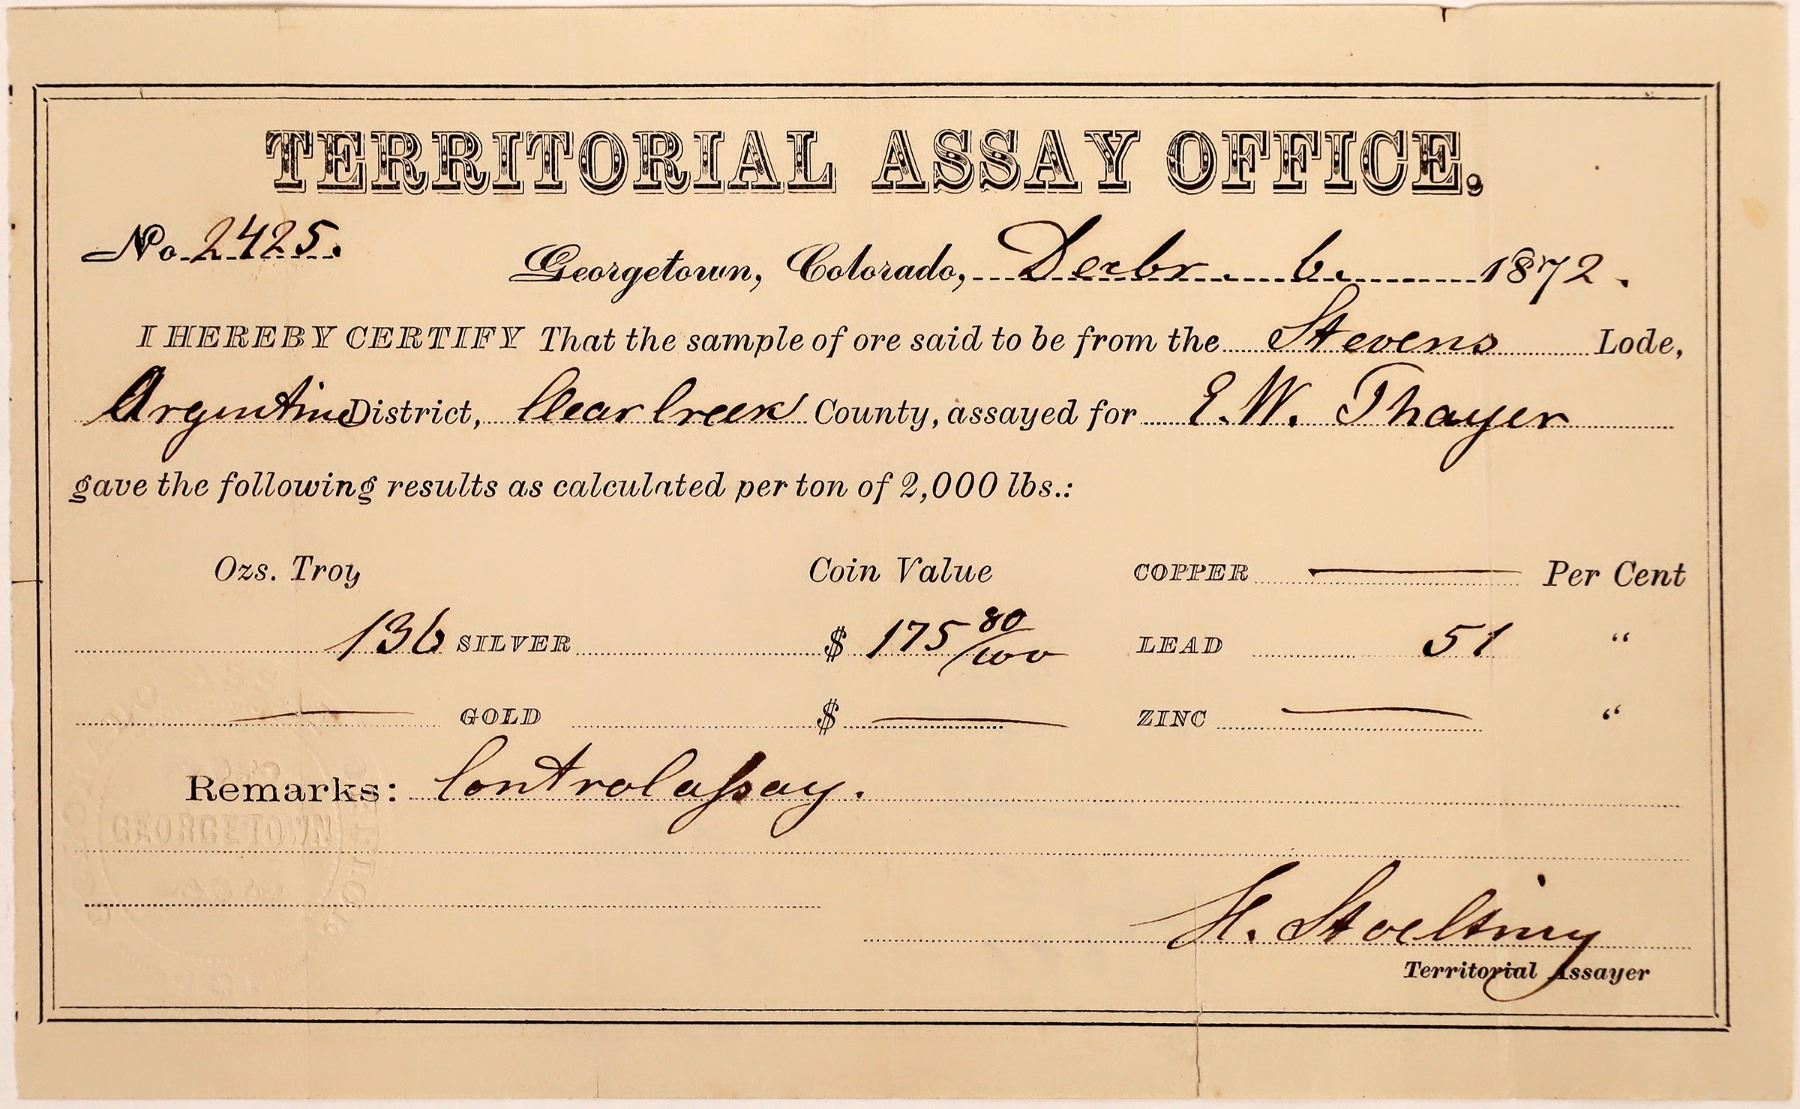 TERRITORIAL ASSAY OFFICE.
No. 2425.
Georgetown, Colorado, Decbr. 6. 1872.
I HEREBY CERTIFY That the sample of ore said to be from the Stevens Lode,
Argentine District, Clear Creek County, assayed for E. W. Thayer
gave the following results as calculated per ton of 2,000 lbs.:
Ozs. Troy Coin Value COPPER — Per Cent
136 SILVER $ 175 80/100 LEAD 51 "
— GOLD $ — ZINC — "
Remarks: Controlassay.
GEORGETOWN
H. Stoelting
Territorial Assayer